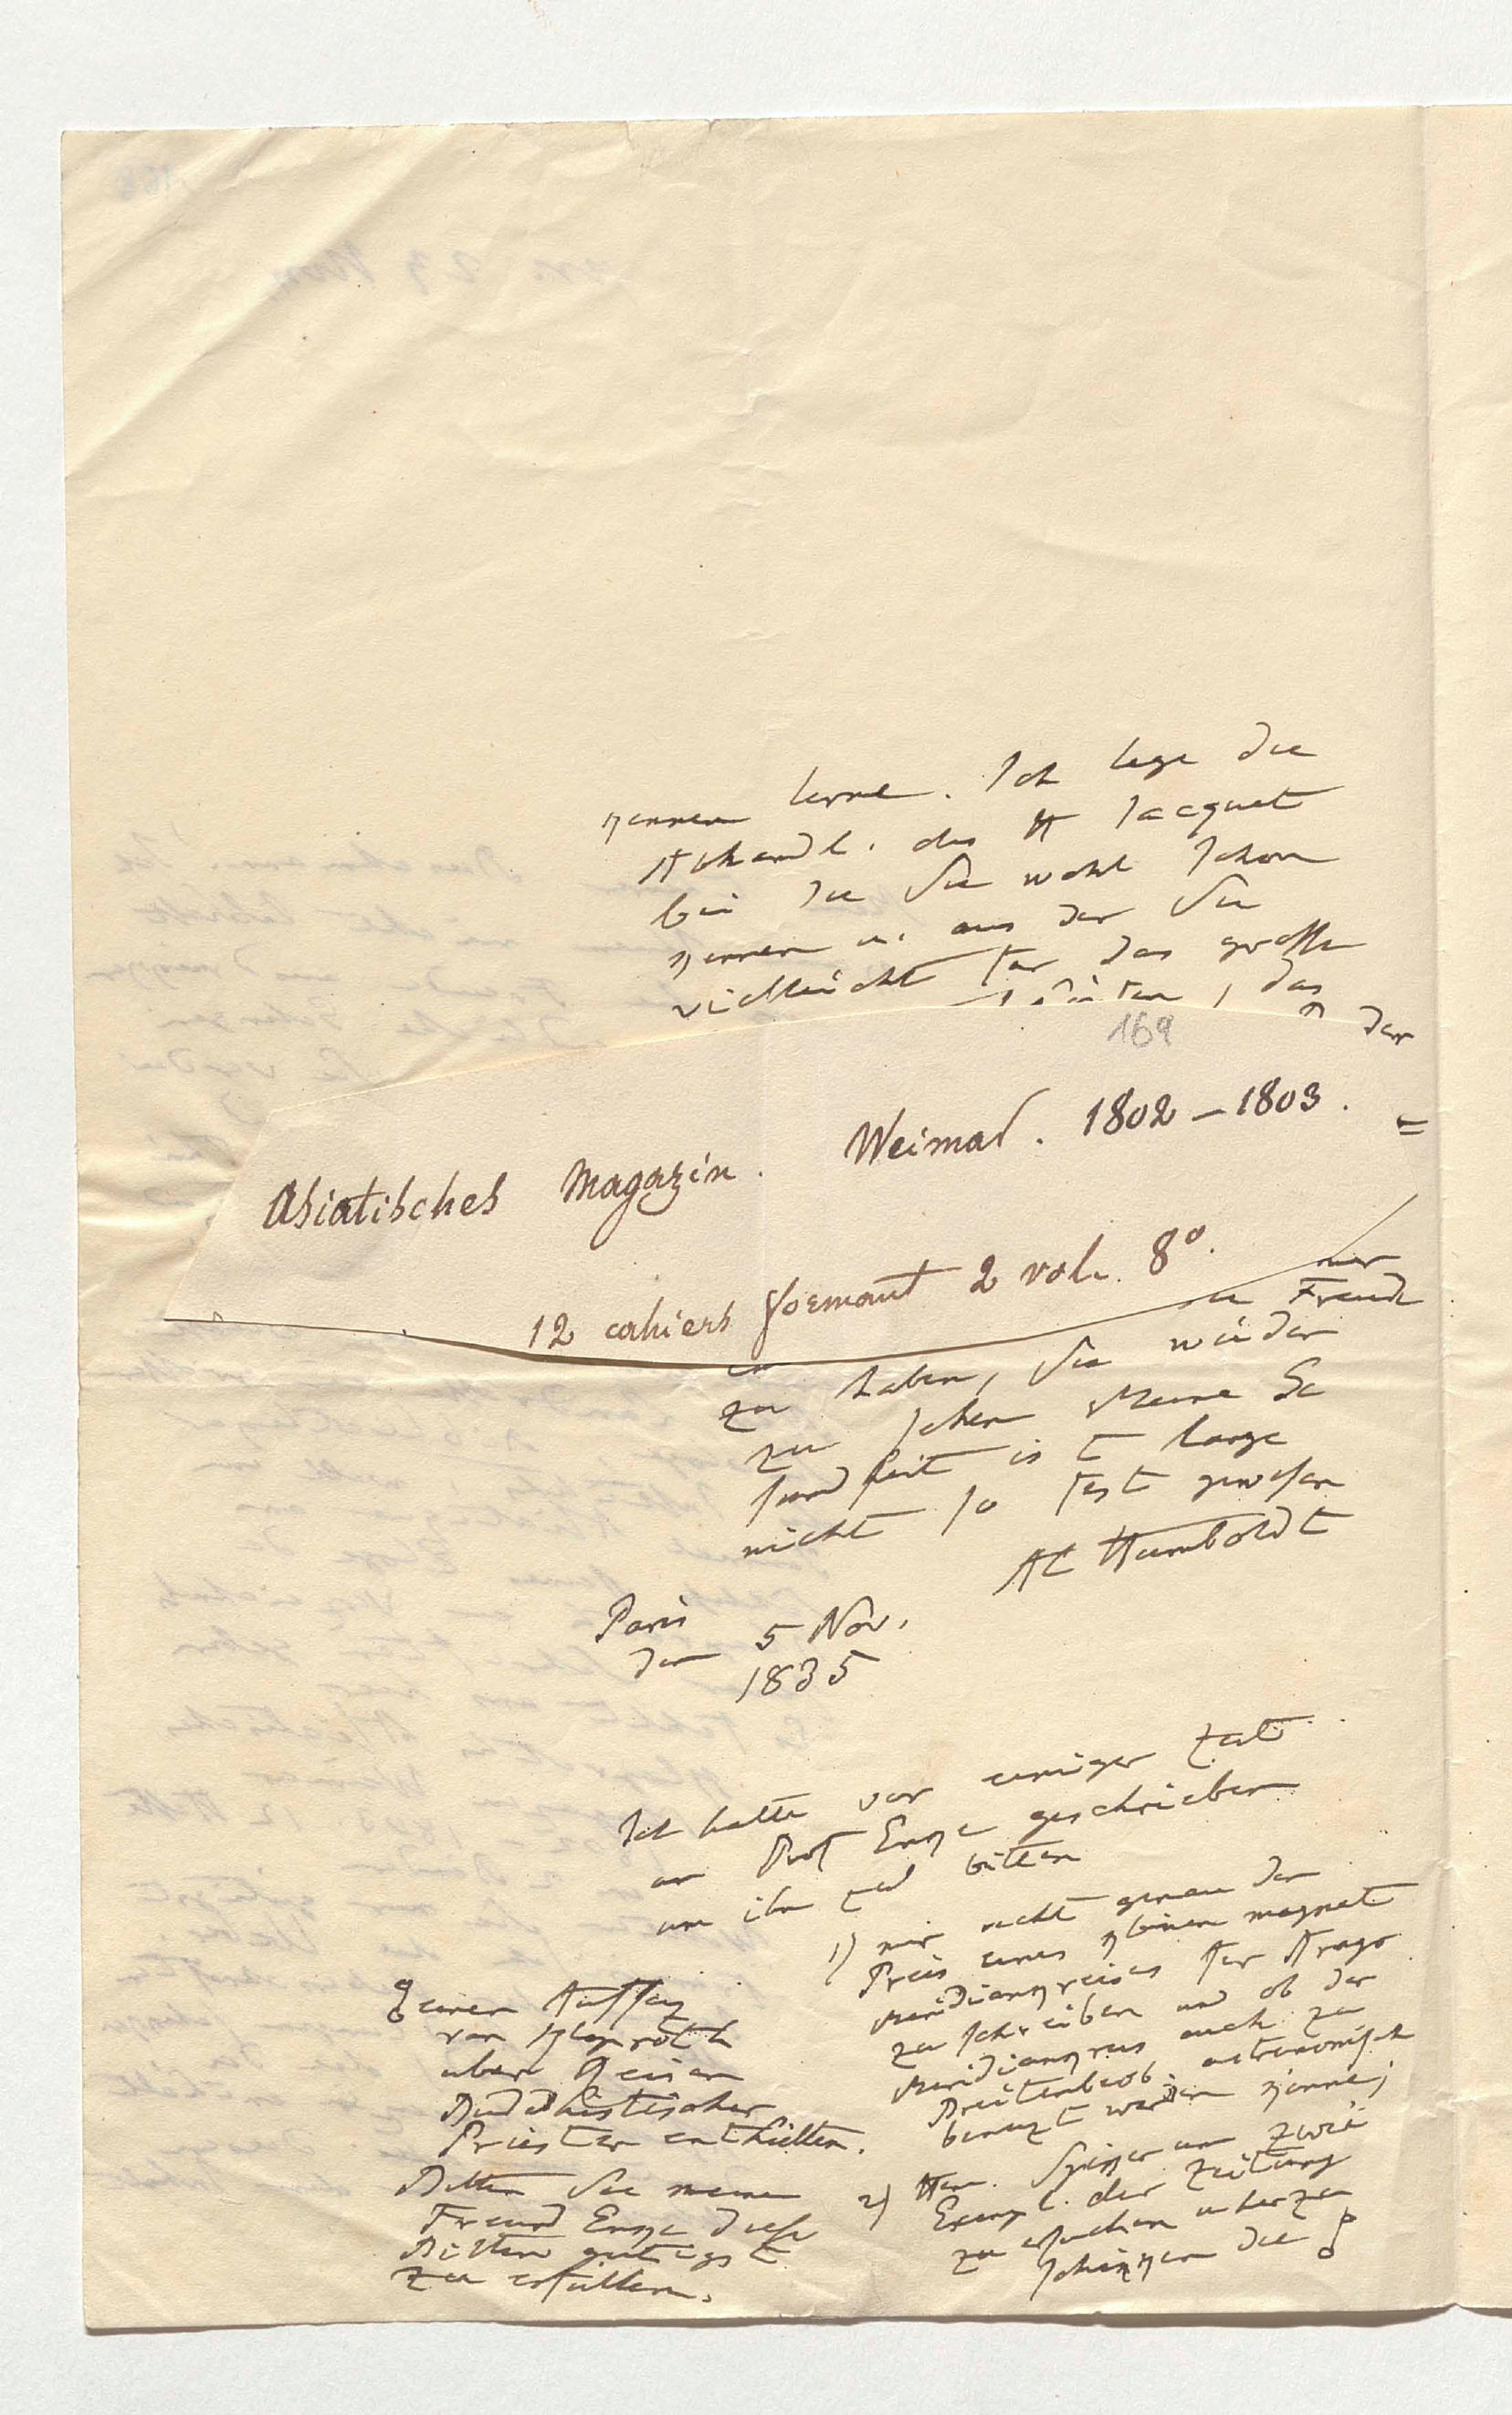 kennen lerne. Ich lege die
Abhandl. des H Jacquet
bei die Sie wohl schon
kennen u. aus der Sie
vielleicht für das grosse
das
der
169
Asiatisches Magazin. Weimar. 1802–1803.
=
12 cahiers formant 2 vol. 8°.
mer
die Freude
zu haben, Sie wieder
zu sehen Meine Ge
sundheit ist lange
nicht so fest gewesen
Al Humboldt
Paris
den 5 Nov.
1835
Ich hatte vor einiger Zeit
an Prof Enke geschrieben
um ihn zu bitten
1) mir recht genau den
Preis eines kleinen magnet
Meridiankreises für Arago
zu schreiben und ob der
Meridiankreis auch zu
Breitenbeob. astronomisch
benuzt werden kenne;
2) Hrn. Spiker um zwei
Exempl. der Zeitung
zu ersuchen uberzu
schikken die
einen Aufsaz
von Klaproth
uber Reisen
Buddhistischer
Priester enthielten.
Bitten Sie meinen
Freund Enke diese
Bitten gutigst
zu erfullen.